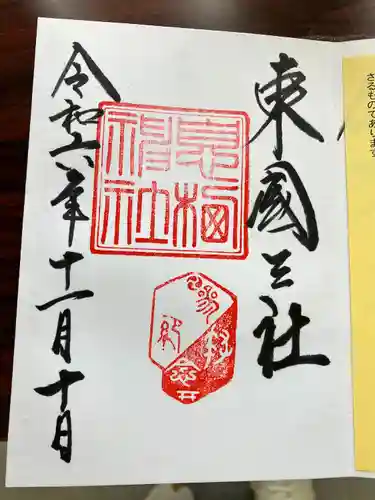 東國三社
息栖神社
令和六年十一月十日
さるものであります